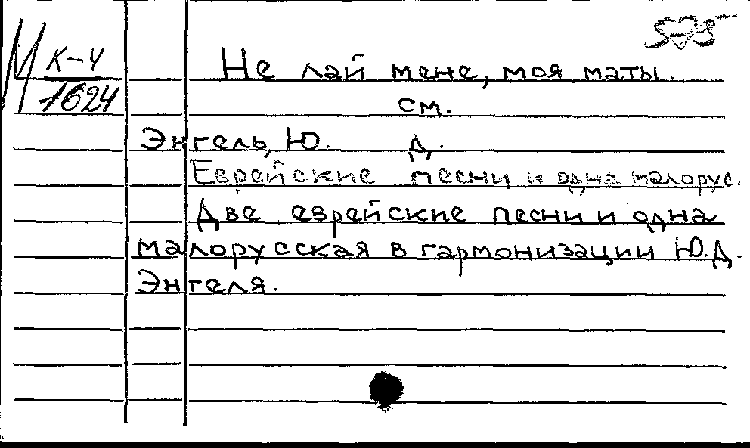 М К-V
1624
Не лай мене, моя маты.
см.
Энгель, Ю. Д.
Еврейские песни и одна малорус.
Две еврейские песни и одна
малорусская в гармонизации Ю.Д.
Энгеля.